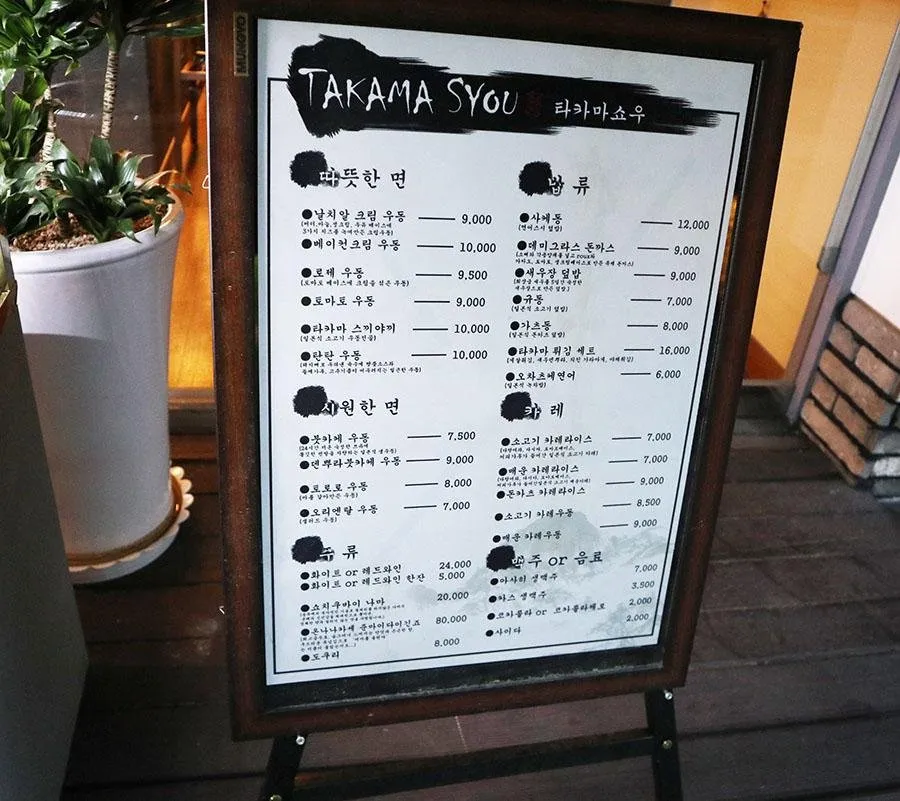 MUNGYO
TAKAMA SYOU 타카마쇼우
따뜻한 면
●날치알 크림 우동 9,000
●베이컨크림 우동 10,000
●로제 우동 9,500
(토마토 베이스에 크림을 섞은 우동)
●토마토 우동 9,000
●타카마 스끼야끼 10,000
(일본식 소고기 우동전골)
●탄탄 우동 10,000
시원한 면
●붓카케 우동 7,500
●덴뿌라붓카케 우동 9,000
●토로로 우동 8,000
(마를 갈아만든 우동)
●오리엔탈 우동 7,000
(샐러드 우동)
주 류
●화이트 or 레드와인 24,000
●화이트 or 레드와인 한잔 5,000
●쇼치쿠바이 나마 20,000
●온나나카세 준마이다이긴죠 80,000
●도쿠리 8,000
밥 류
●사케동 12,000
(연어스시 덮밥)
●데미그라스 돈까스 9,000
●새우장 덮밥 9,000
●규동 7,000
(일본식 소고기 덮밥)
●가츠동 8,000
(일본식 돈까스 덮밥)
●타카마 튀김 세트 16,000
●오차츠케연어 6,000
(일본식 녹차밥)
카 레
●소고기 카레라이스 7,000
●매운 카레라이스 7,000
●돈카츠 카레라이스 9,000
●소고기 카레우동 8,500
●매운 카레우동 9,000
맥주 or 음료
●아사히 생맥주 7,000
●카스 생맥주 3,500
●코카콜라 or 코카콜라제로 2,000
●사이다 2,000